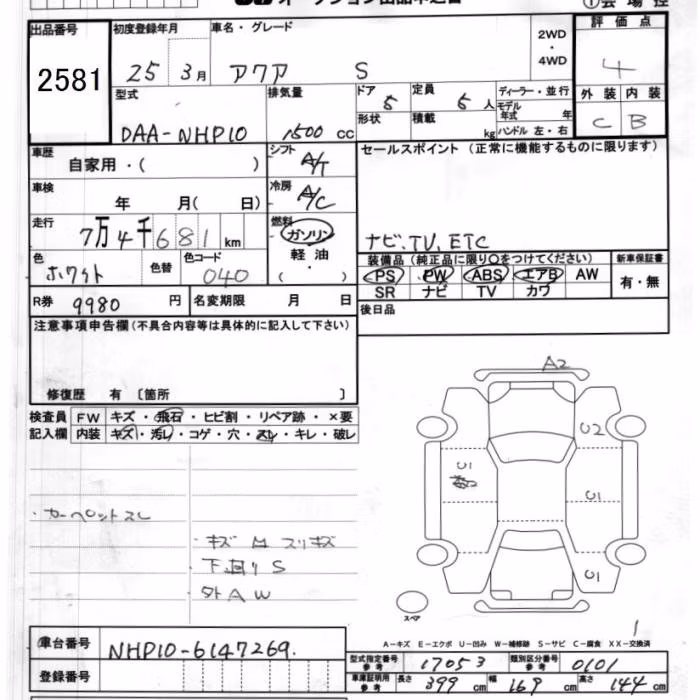 出品番号 初度登録年月 車名・グレード 2WD・4WD 評価点
2581 25 3月 アクア S 4
型式 排気量 ドア 5 定員 5人 ディーラー・並行 外装 内装
モデル年式 年
DAA-NHP10 1500 cc 形状 積載 kg ハンドル 左・右 C B
車歴 自家用・( ) シフト A/T セールスポイント (正常に機能するものに限ります)
車検 年 月( 日) 冷房 A/C
走行 7万4千681km 燃料 ガソリン・軽油 ( ) ナビ、TV、ETC
色 ホワイト 色替 色コード 040 装備品 (純正品に限り○をつけてください) 新車保証書
PS PW ABS エアB AW 有・無
SR ナビ TV カワ
R券 9980円 名変期限 月 日 後日品
注意事項申告欄 (不具合内容等は具体的に記入して下さい)
修復歴 有 〔箇所 〕
検査員 FW キズ・飛石・ヒビ割・リペア跡・×要
記入欄 内装 キズ・汚レ・コゲ・穴・スレ・キレ・破レ
A2
U2
U1
U1
U1
・カーペットスレ
・キズ 凹 スリキズ
下廻りS
・外AW
スペア
1
A－キズ E－エクボ U－凹み W－補修跡 S－サビ C－腐食 XX－交換済
車台番号 NHP10-6147269.
登録番号
型式指定番号 参考 17053 類別区分番号 参考 0101
車庫証明用 参考 長さ 399 cm 幅 169 cm 高さ 144 cm